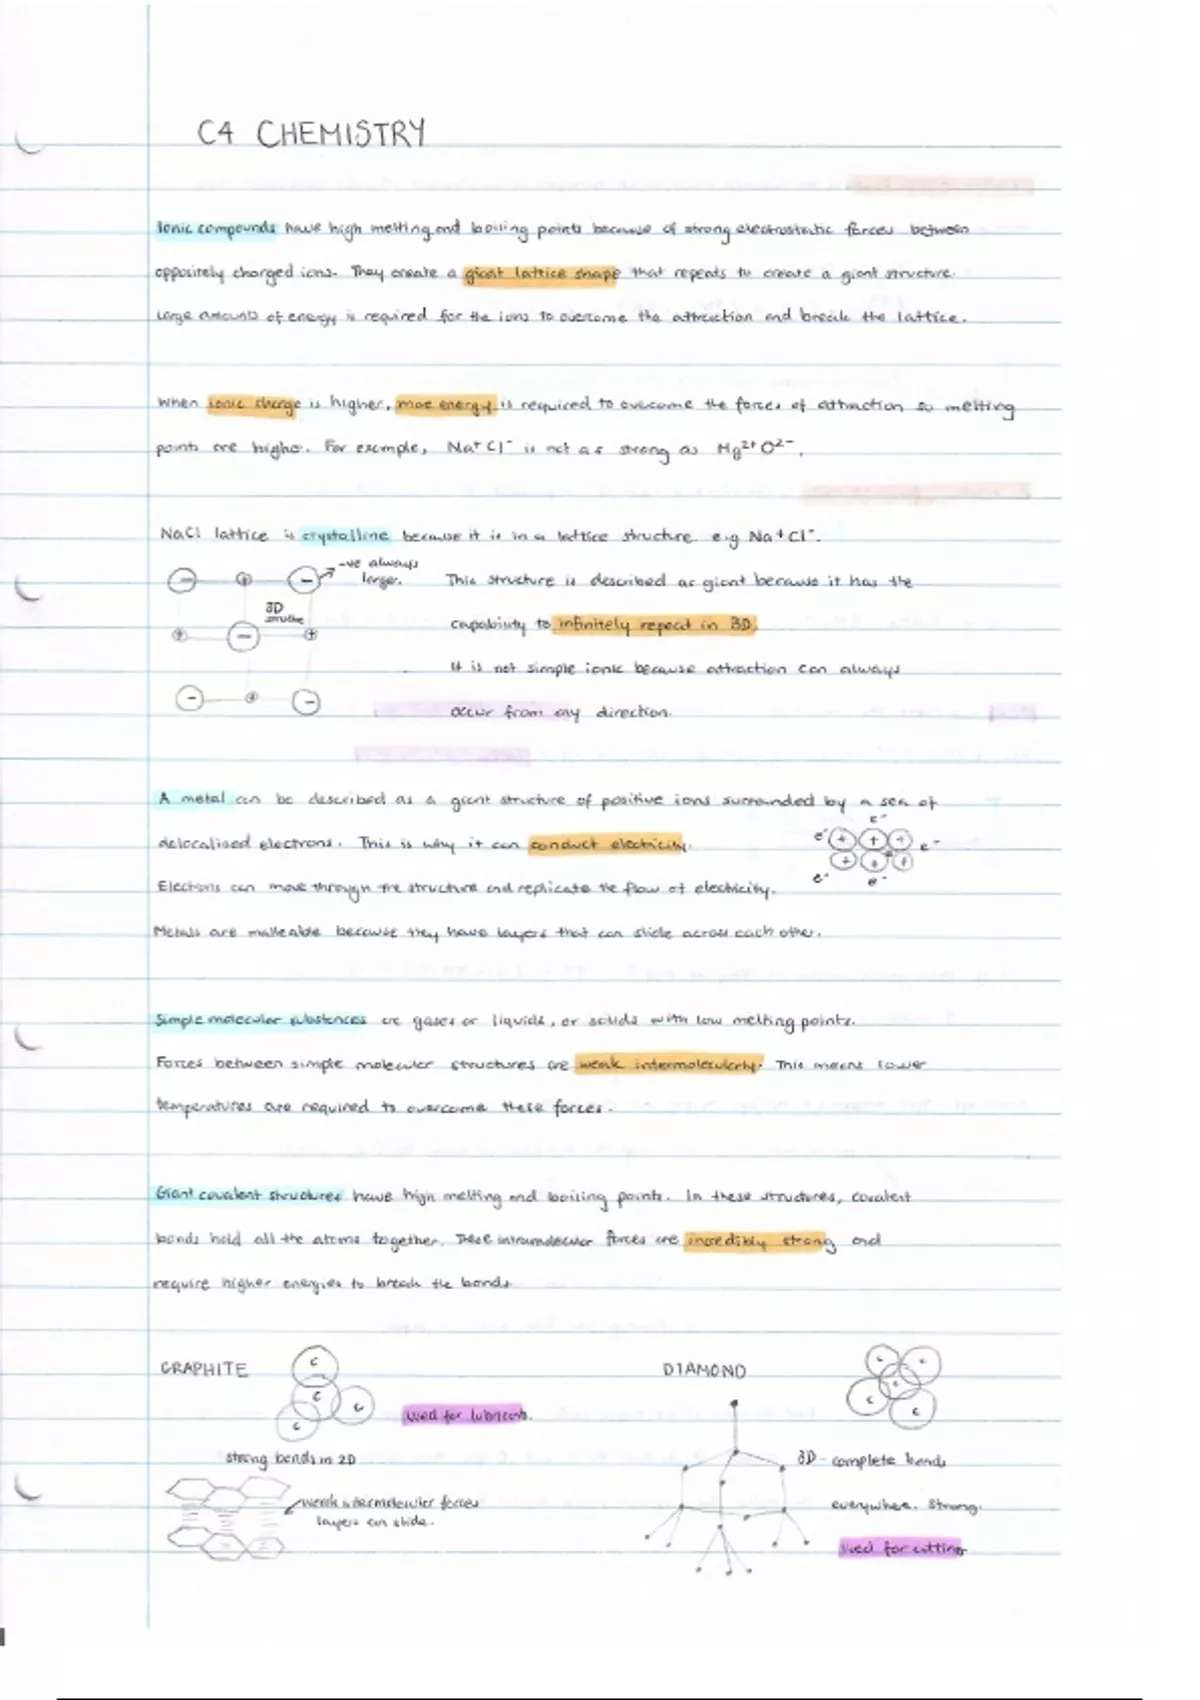 C4 CHEMISTRY
Ionic compounds have high melting and boiling points because of strong electrostatic forces between
oppositely charged ions. They create a giant lattice shape that repeats to create a giant structure.
Large amounts of energy is required for the ions to overcome the attraction and break the lattice.
When ionic charge is higher, more energy is required to overcome the forces of attraction so melting
points are higher. For example, Na⁺Cl⁻ is not as strong as Mg²⁺O²⁻.
NaCl lattice is crystalline because it is in a lattice structure e.g Na⁺Cl⁻.
-ve always
larger.
This structure is described as giant because it has the
3D
structure
capability to infinitely repeat in 3D.
It is not simple ionic because attraction can always
occur from any direction.
− + −
+ − +
− + −
A metal can be described as a giant structure of positive ions surrounded by a sea of
delocalised electrons. This is why it can conduct electricity.
e⁻
e⁻ + + + e⁻
+ + +
e⁻ e⁻
Electrons can move through the structure and replicate the flow of electricity.
Metals are malleable because they have layers that can slide across each other.
Simple molecular substances are gases or liquids, or solids with low melting points.
Forces between simple molecular structures are weak intermolecularly. This means lower
temperatures are required to overcome these forces.
Giant covalent structures have high melting and boiling points. In these structures, covalent
bonds hold all the atoms together. These intramolecular forces are incredibly strong and
require higher energies to break the bonds
GRAPHITE
C
C
C
C
used for lubricants.
strong bonds in 2D
weak intermolecular forces
layers can slide.
DIAMOND
C C
C
C C
3D - complete bonds
everywhere. Strong.
Used for cutting